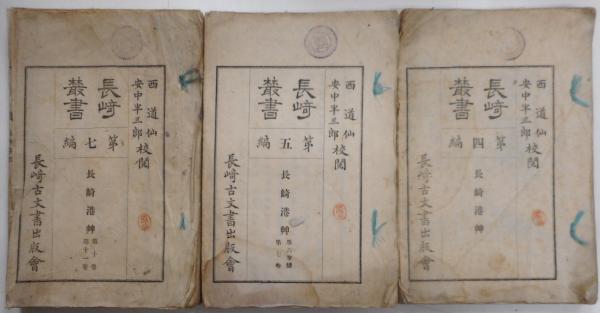 西道仙
安中半三郎 校閲
長崎
叢書
第七編
長崎港艸
第十卷
第十一卷
長崎古文書出版會
西道仙
安中半三郎 校閲
長崎
叢書
第五編
長崎港艸
長崎古文書出版會
西道仙
安中半三郎 校閲
長崎
叢書
第四編
長崎港艸
長崎古文書出版會